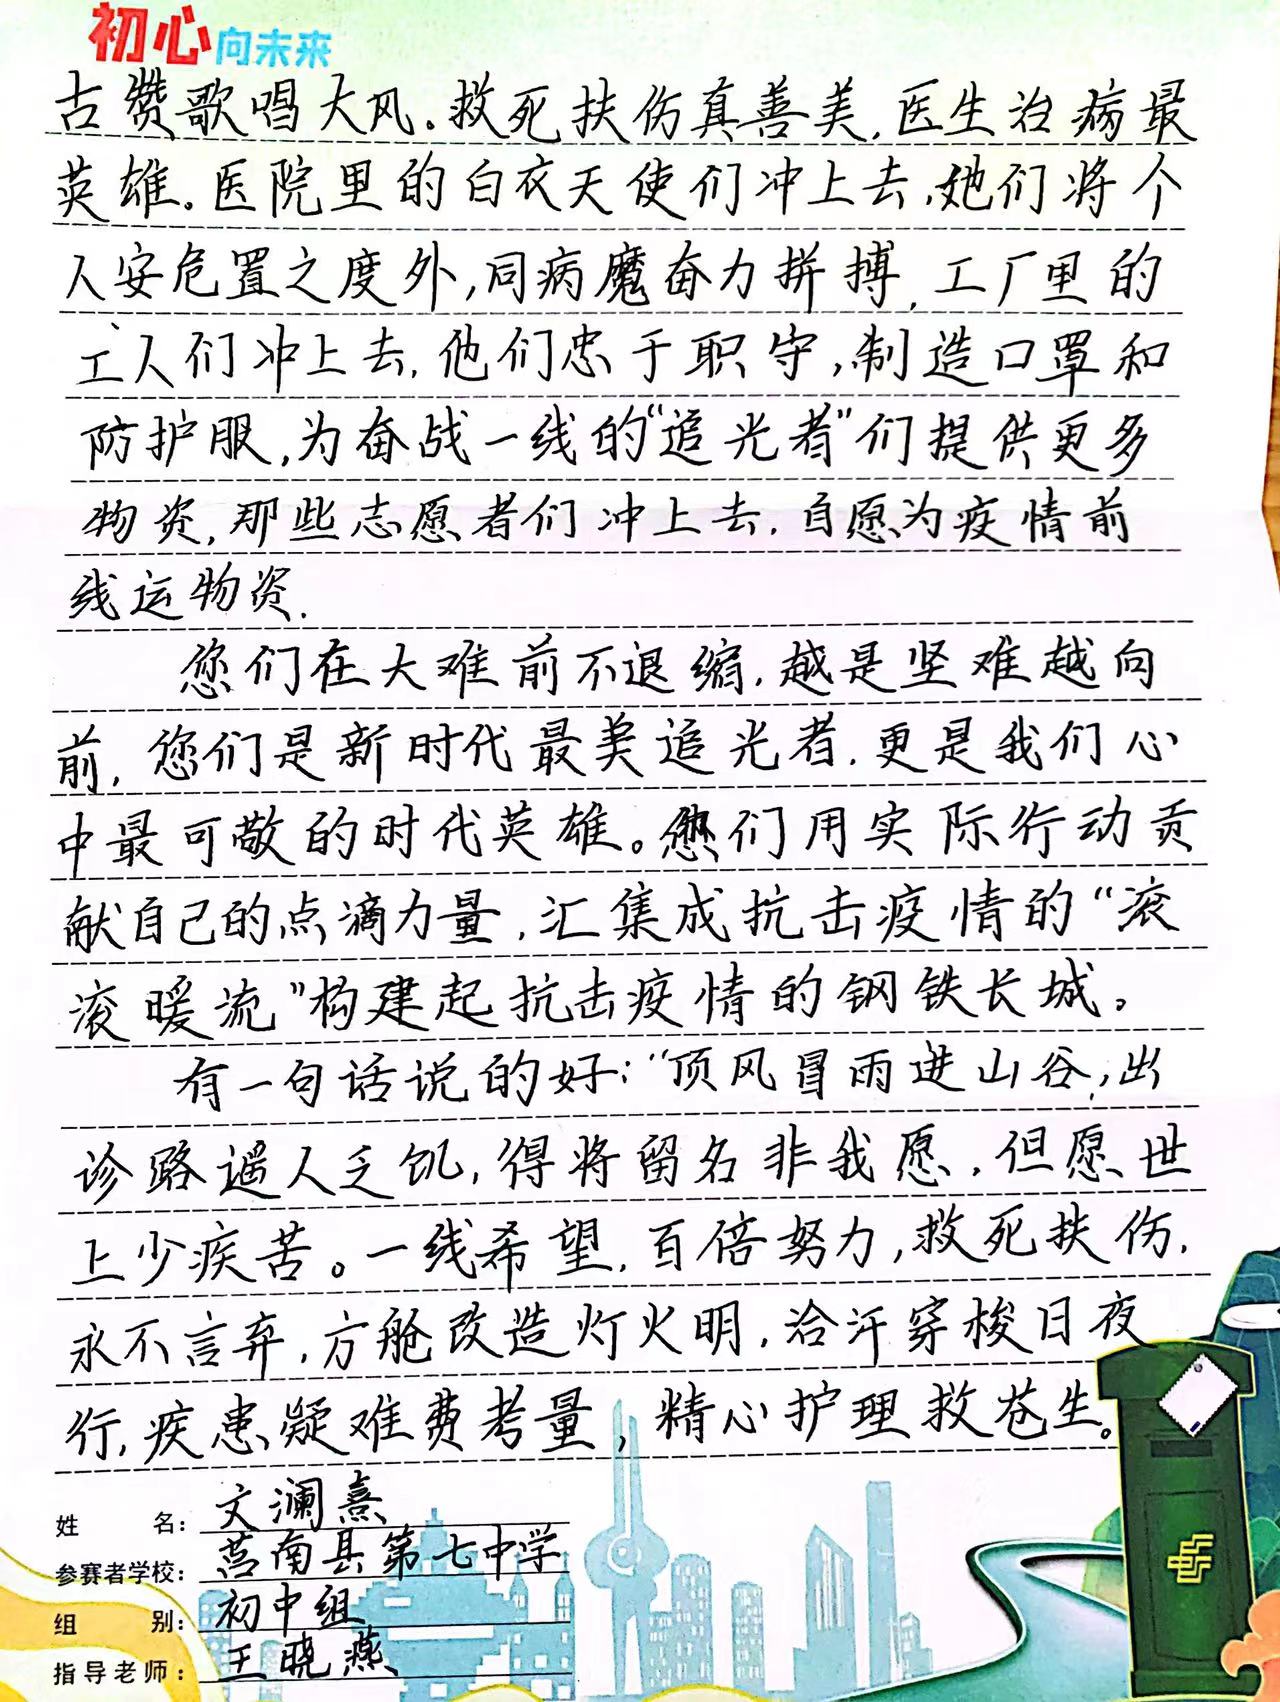 初心向未来
古赞歌唱大风。救死扶伤真善美,医生治病最
英雄。医院里的白衣天使们冲上去,她们将个
人安危置之度外,同病魔奋力拼搏,工厂里的
工人们冲上去,他们忠于职守,制造口罩和
防护服,为奋战一线的“追光者”们提供更多
物资,那些志愿者们冲上去,自愿为疫情前
线运物资.
您们在大难前不退缩,越是坚难越向
前,您们是新时代最美追光者,更是我们心
中最可敬的时代英雄。您们用实际行动贡
献自己的点滴力量,汇集成抗击疫情的“滚
滚暖流”构建起抗击疫情的钢铁长城。
有一句话说的好:“顶风冒雨进山谷,出
诊路遥人乏饥,得将留名非我愿,但愿世
上少疾苦。一线希望,百倍努力,救死扶伤,
永不言弃,方舱改造灯火明,洽汗穿梭日夜
行,疾患疑难费考量,精心护理救苍生。
姓 名: 文澜熹
参赛者学校: 莒南县第七中学
组 别: 初中组
指导老师: 王晓燕